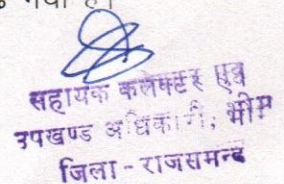 गया है।
सहायक कलेक्टर एवं
उपखण्ड अधिकारी, भीम
जिला - राजसमन्द